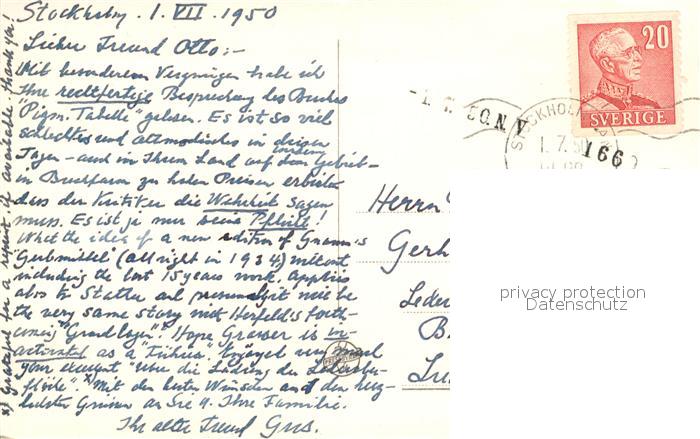 Stockholm. 1. VII. 1950
Lieber Freund Otto:-
Mit besonderem Vergnügen habe ich
Ihre rechtfertige Besprechung des Buches
"Pigm. Tabelle" gelesen. Es ist so viel
schlechtes und altmodisches in diesen
Tagen - und in Ihrem Land auf dem Gebiet -
in Buchform zu hohen Preisen
dass der Kritiker die Wahrheit sagen
muss. Es ist ja nur seine Pflicht!
What the idea of a new edition of
"Gerbmittel" (all right in 1934) without
including the last 15 years work. Applies
also to Stather and presumably it will be
the very same story with Herfeld's forth-
coming "Grundlagen". Hope Grasser is in-
as a "Führer". Enjoyed very much
your excellent "Über die der Lederober-
fläche". x) Mit den besten Wünschen und den herz-
lichsten Grüssen an Sie u. Ihre Familie.
Ihr alter Freund Gus.
x) Grateful for a reprint if available. Thank you!
20
SVERIGE
STOCKHOLM
1. 7. 50
166
Herrn
Gerb
Leder
B
privacy protection
Datenschutz